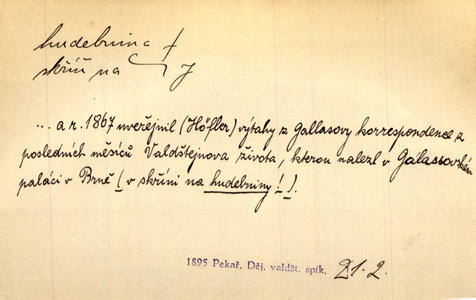 hudebnina f
skříň na ~ J
... a r. 1867 uveřejnil (Höfler) výtahy z Gallasovy korrespondence z
posledních měsíců Valdštejnova života, kterou nalezl v Galassovském
paláci v Brně (v skříni na hudebniny!).
1895 Pekař, Děj. valdšt. spik. 21.2.